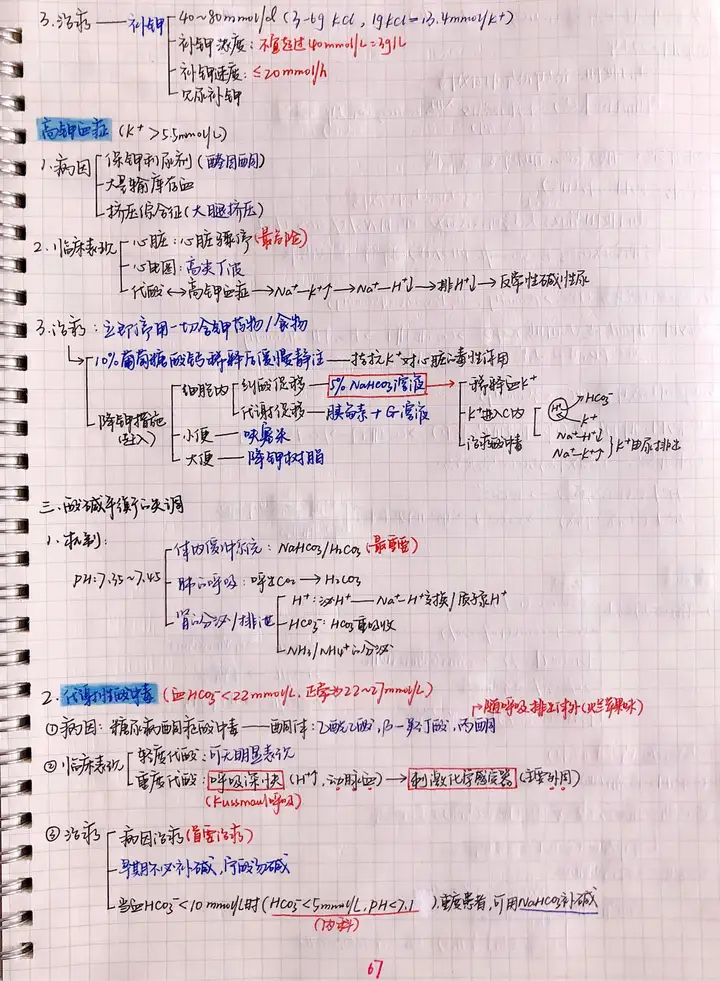 3.治疗——补钾 40~80mmol/d (3-6g KCl, 1gKCl=13.4mmol/K+)
补钾浓度:不宜超过40mmol/L=3g/L
补钾速度:≤20mmol/h
见尿补钾
高钾血症 (K+>5.5mmol/L)
1.病因 保钾利尿剂(醛固酮)
大量输库存血
挤压综合征(大腿挤压)
2.临床表现 心脏:心脏骤停(最危险)
心电图:高尖T波
代酸↔高钾血症→Na+-K+↑→Na+-H+↓→排H+↓→反常性碱性尿
3.治疗:立即停用一切含钾药物/食物
10%葡萄糖酸钙稀释后缓慢静注——拮抗K+对心脏毒性作用
细胞内 纠酸促移——5% NaHCO3溶液→稀释血K+
代谢促移——胰岛素+G溶液 K+进入C内 H+ HCO3- K+
降钾措施 小便——呋塞米 治疗酸中毒 Na+-H+↓ Na+-K+↑}K+由尿排出
大便——降钾树脂
三.酸碱平衡的失调
1.机制:
体内缓冲系统:NaHCO3/H2CO3(最重要)
PH:7.35~7.45 肺的呼吸:呼出CO2→H2CO3
肾的分泌/排泄 H+:泌H+——Na+-H+交换/质子泵H+
HCO3-:HCO3重吸收
NH3/NH4+的分泌
2.代谢性酸中毒(血HCO3-<22mmol/L,正常为22~27mmol/L)
→随呼吸排出体外(烂苹果味)
①病因:糖尿病酮症酸中毒——酮体:乙酰乙酸,β-羟丁酸,丙酮
②临床表现 轻度代酸:可无明显表现
重度代酸:呼吸深快(H+↑,动脉血)→刺激化学感受器(主要外周)
(Kussmaul呼吸)
③治疗 病因治疗(首要治疗)
早期不必补碱,宁酸勿碱
当血HCO3-<10mmol/L时(HCO3-<5mmol/L,PH<7.1),重度患者,可用NaHCO3补碱
(内科)
67